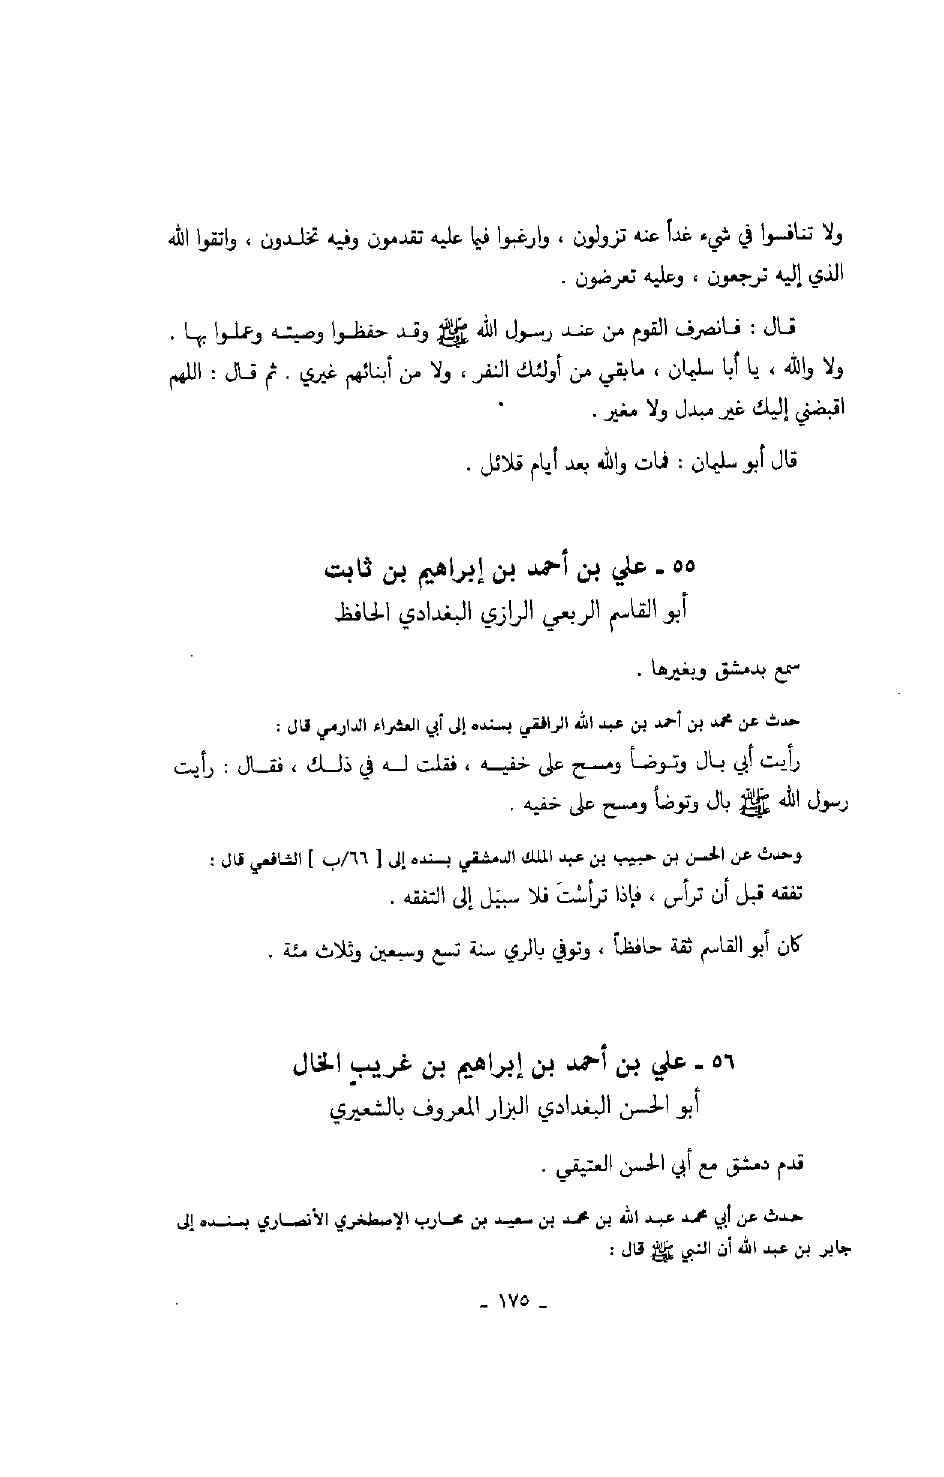 ولا تنافسوا في شيء غداً عنه تزولون ، وارغبوا فيما عليه تقدمون وفيه تخلدون ، واتقوا الله
الذي إليه ترجعون ، وعليه تعرضون .
قال : فانصرف القوم من عند رسول الله ﷺ وقد حفظوا وصيته وعملوا بها .
ولا والله ، يا أبا سليمان ، مابقي من أولئك النفر ، ولا من أبنائهم غيري . ثم قال : اللهم
اقبضني إليك غير مبدل ولا مغير .
قال أبو سليمان : فمات والله بعد أيام قلائل .
٥٥ - علي بن أحمد بن إبراهيم بن ثابت
أبو القاسم الربعي الرازي البغدادي الحافظ
سمع بدمشق وبغيرها .
حدث عن محمد بن أحمد بن عبد الله الرافقي بسنده إلى أبي العشراء الدارمي قال :
رأيت أبي بال وتوضأ ومسح على خفيه ، فقلت له في ذلك ، فقال : رأيت
رسول الله ﷺ بال وتوضأ ومسح على خفيه .
وحدث عن الحسن بن حبيب بن عبد الملك الدمشقي بسنده إلى [ ٦٦/ب ] الشافعي قال :
تفقه قبل أن ترأس ، فإذا ترأسْتَ فلا سبيَل إلى التفقه .
كان أبو القاسم ثقة حافظاً ، وتوفي بالري سنة تسع وسبعين وثلاث مئة .
٥٦ - علي بن أحمد بن إبراهيم بن غريب الخال
أبو الحسن البغدادي البزار المعروف بالشعيري
قدم دمشق مع أبي الحسن العتيقي .
حدث عن أبي محمد عبد الله بن محمد بن سعيد بن محارب الإصطخري الأنصاري بسنده إلى
جابر بن عبد الله أن النبي ﷺ قال :
- ١٧٥ -